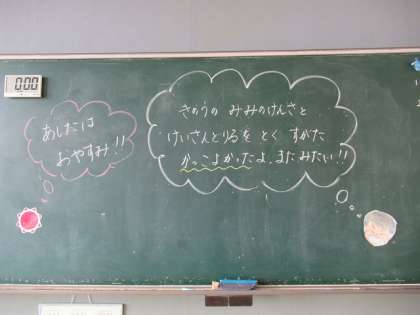 0:00
あしたは
おやすみ!!
きのうの みみのけんさと
けいさんどりるを とく すがた
かっこよかったよ、またみたい!!